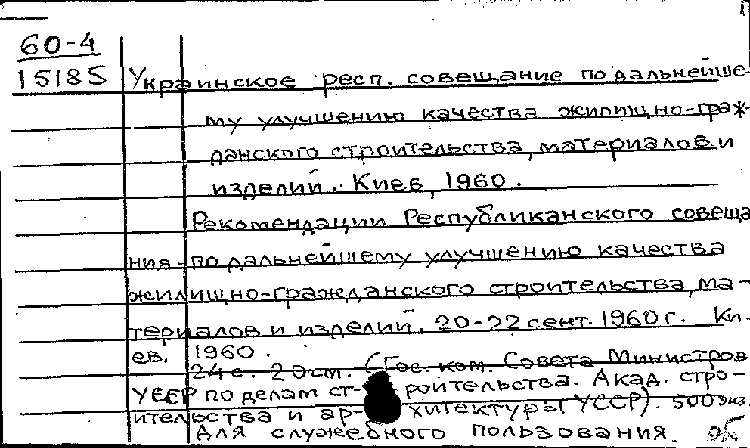 60-4
15185 Украинское респ. совещание по дальнейше-
му улучшению качества жилищно-граж-
данского строительства, материалов и
изделий. Киев, 1960.
Рекомендации Республиканского совеща
ния по дальнейшему улучшению качества
жилищно-гражданского строительства, ма-
териалов и изделий. 20-22 сент. 1960 г. Ки-
ев, 1960.
24 с. 20 см. (Гос. ком. Совета Министров
УССР по делам ст-роительства. Акад. стро-
ительства и ар-хитектуры УССР). 500 экз.
Для служебного пользования.